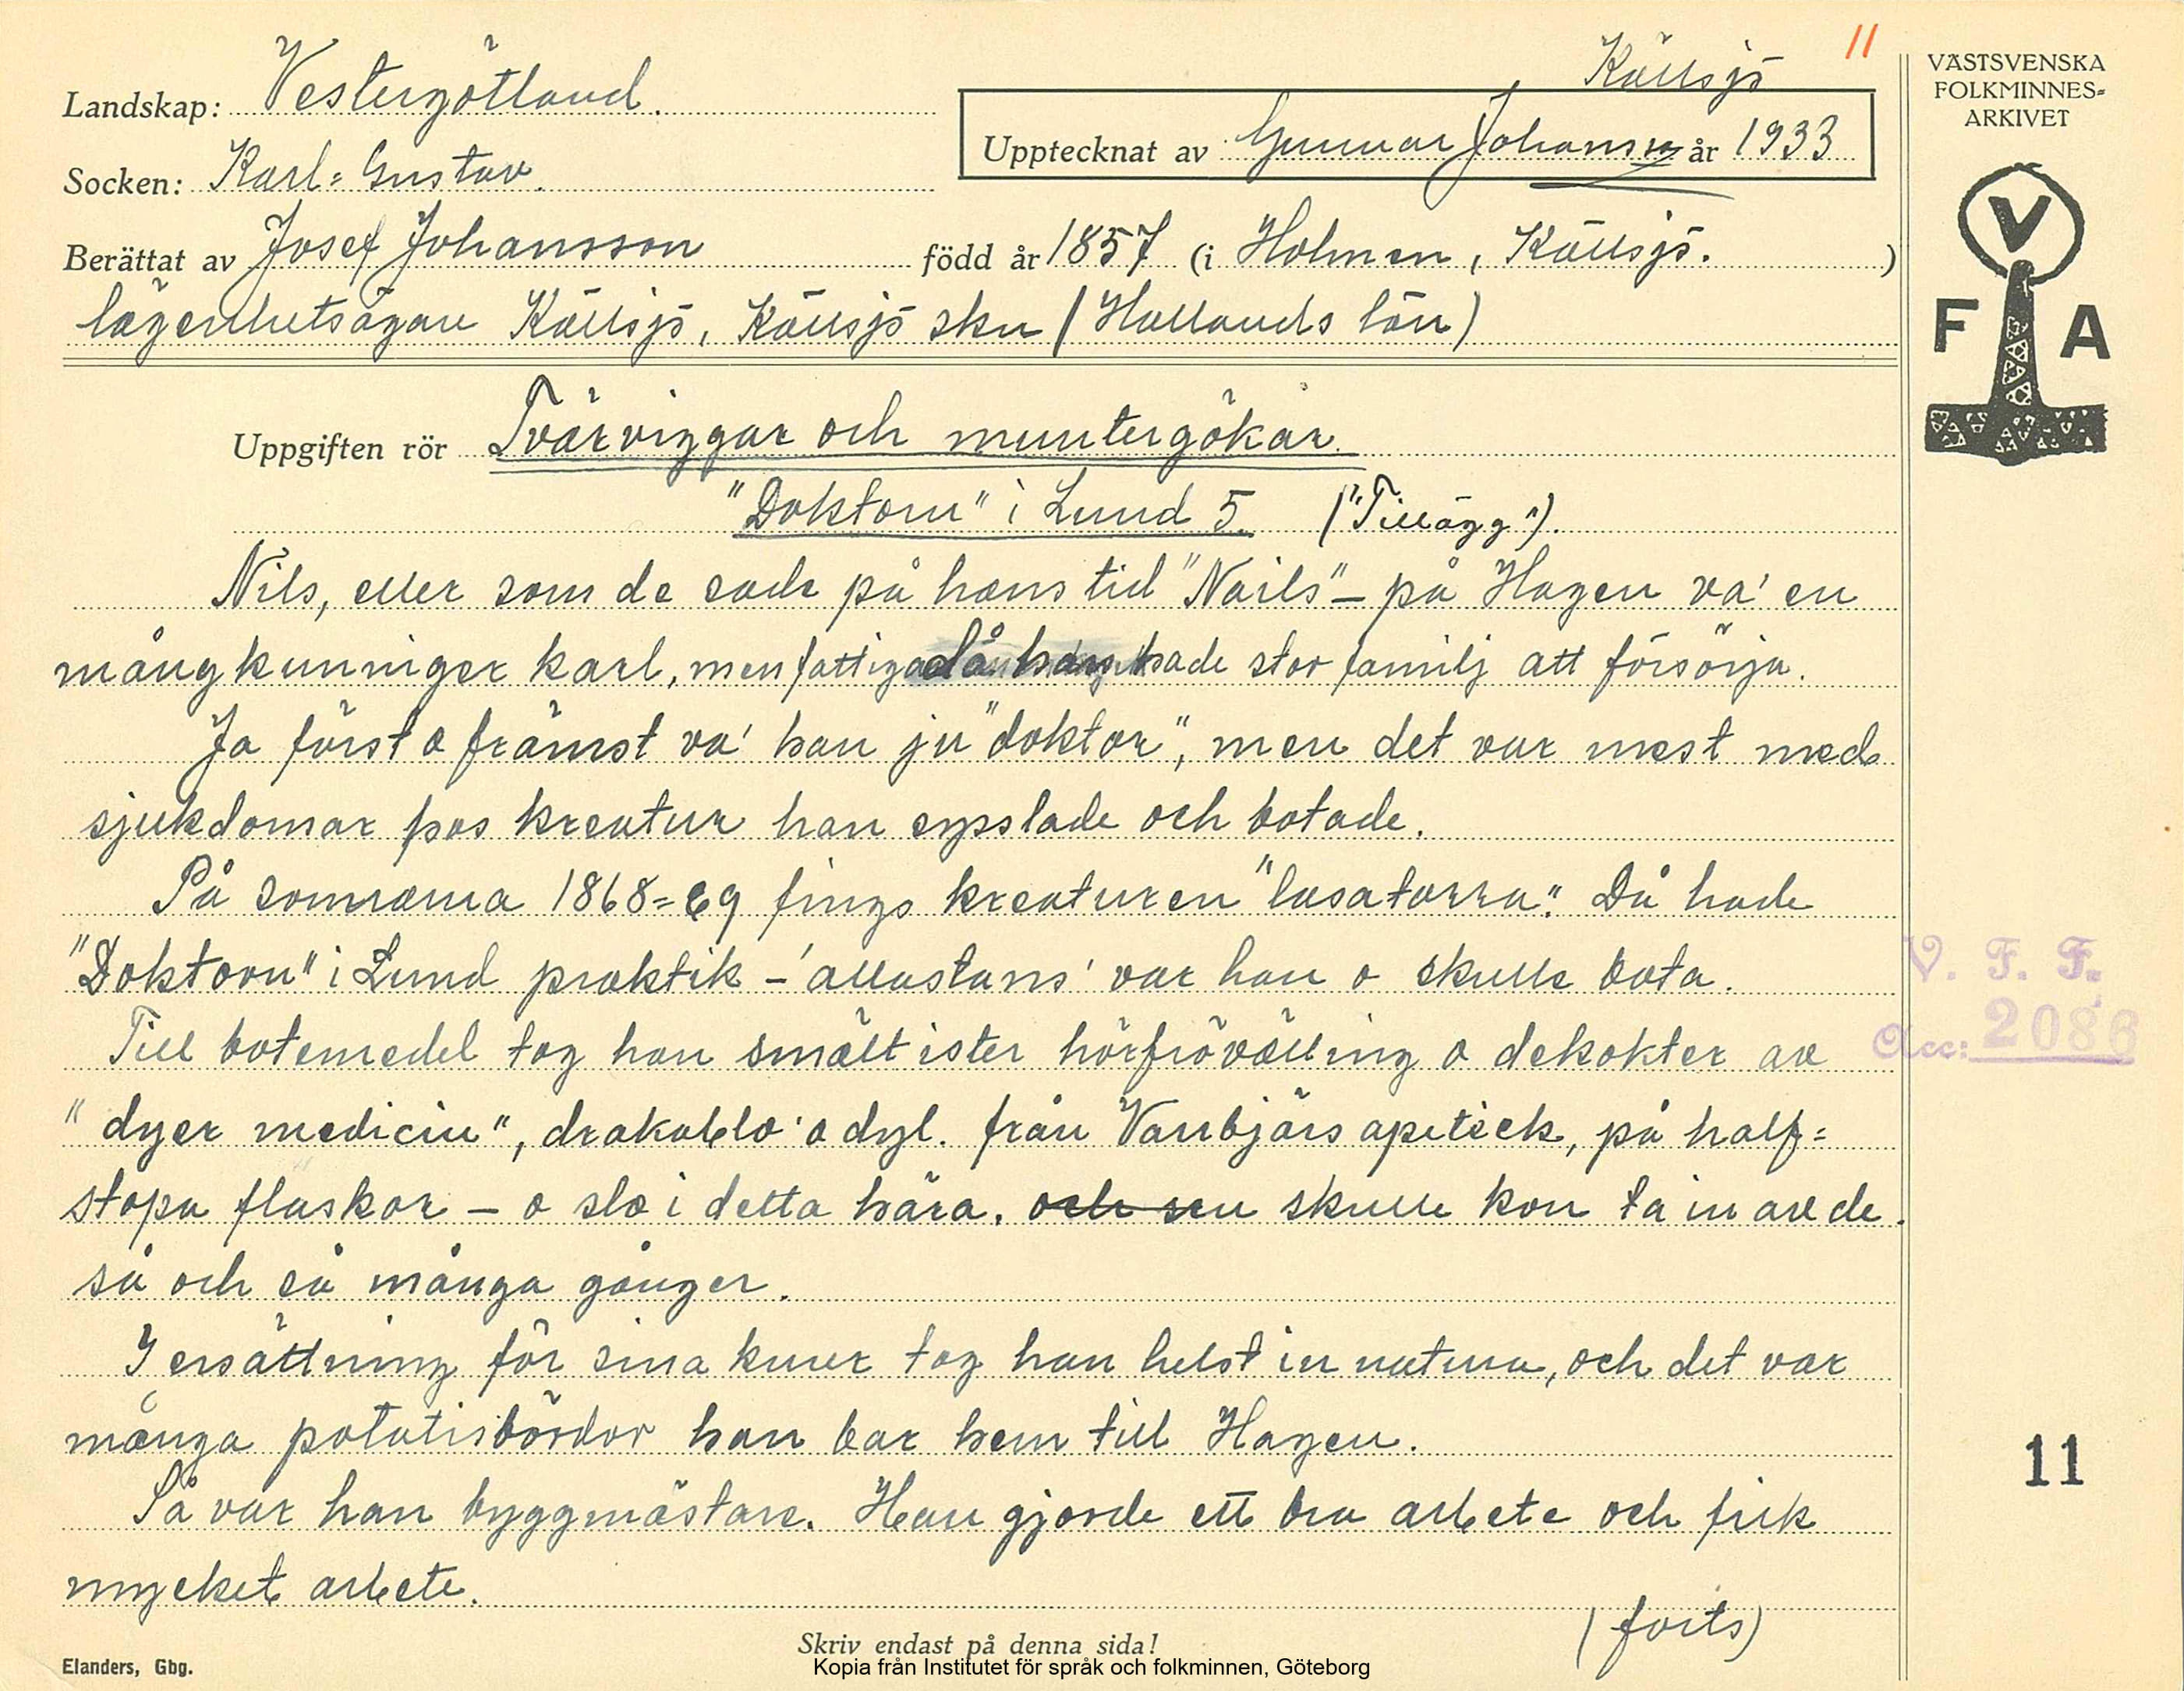 11
Källsjö
VÄSTSVENSKA
FOLKMINNES-
ARKIVET
Landskap: Vestergötland.
Upptecknat av Gunnar Johansson år 1933
Socken: Karl-Gustav.
Berättat av Josef Johansson född år 1857 (i Holmen, Källsjö.)
lägenhetsägare Källsjö, Källsjö skn (Hallands län)
V
F A
Uppgiften rör Tvärviggar och muntergökar.
"Doktorn" i Lund 5. ("Tillägg").
Nils, eller som de sade på hans tid "Nails" – på Hagen va' en
mångkunniger karl, men fattig då han hade stor familj att försörja.
Ja först o främst va' han ju "doktor", men det var mest med
sjukdomar hos kreatur han sysslade och botade.
På somrarna 1868-69 fings kreaturen "lusatorra". Då hade
"Doktorn" i Lund praktik – 'allastans' var han o skulle bota.
Till botemedel tog han smält ister hörfrövälling o dekokter av
"dyer medicin", drakablo' o dyl. från Varbjärs apeteck, på half-
stopa flaskor – o slo i detta hära. och sen skulle kon ta in av de
så och så många gånger.
I ersättning för sina kurer tog han helst in natura, och det var
många potatisbördor han bar hem till Hagen.
Så var han byggmästare. Han gjorde ett bra arbete och fick
mycket arbete.
(forts)
V. F. F.
Acc: 2086
11
Skriv endast på denna sida!
Elanders, Gbg.
Kopia från Institutet för språk och folkminnen, Göteborg